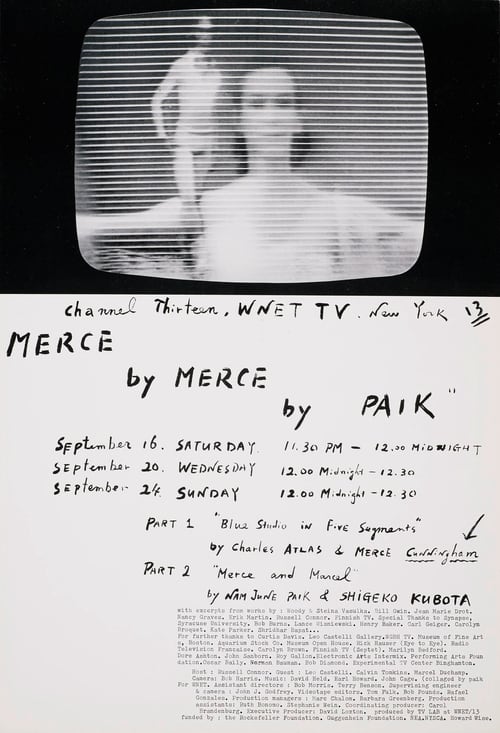 channel Thirteen, WNET TV. New York 13
MERCE
by MERCE
by PAIK"
September 16. SATURDAY. 11.30 PM — 12.00 MIDNIGHT
September 20. WEDNESDAY 12.00 Midnight — 12.30
September 24. SUNDAY 12.00 Midnight — 12.30
PART 1 "Blue Studio in Five Segments"
by Charles ATLAS & MERCE Cunningham
PART 2 "Merce and Marcel"
by NAM JUNE PAIK & SHIGEKO KUBOTA
with excerpts from works by : Woody & Steina Vasulka, Bill Gwin, Jean Marie Drot,
Nancy Graves, Erik Martin, Russell Connor, Finnish TV, Special Thanks to Synapse,
Syracuse University, Bob Burns, Lance Wisniewski, Henry Baker, Carl Geiger, Carolyn
Kroquet, Kate Parker, Shridhar Bapat...
For further thanks to Curtis Davis, Leo Castelli Gallery, WGBH TV, Museum of Fine Art
s, Boston, Aquarium Stock Co, Museum Open House, Rick Hauser (Eye to Eye), Radio
Television Francaise, Carolyn Brown, Finnish TV (Septet), Marilyn Bedford,
Dore Ashton, John Sanborn, Roy Gallon, Electronic Arts Intermix, Performing Arts Foun
dation, Oscar Baily, Norman Bauman, Bob Diamond, Experimental TV Center Binghamton.
Host : Russell Connor, Guest : Leo Castelli, Calvin Tomkins, Marcel Duchamp,
Camera: Bob Harris, Music: David Held, Earl Howard, John Cage, (collaged by paik
For WNET, Assistant directors : Bob Morris, Terry Benson, Supervising engineer
& camera : John J. Godfrey, Videotape editors, Tom Falk, Bob Pounds, Rafael
Gonzalez, Production managers : Marc Chalom, Barbara Greenberg, Production
assistants: Ruth Bonomo, Stephanie Wein, Coordinating producer: Carol
Brandenburg, Executive Producer: David Loxton, produced by TV LAB at WNET/13
funded by : the Rockefeller Foundation, Guggenheim Foundation, NEA, NYSCA, Howard Wise,